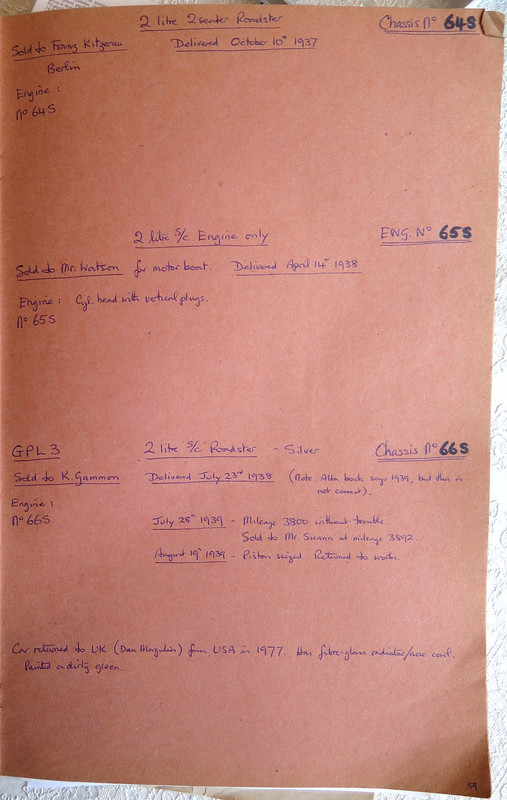 2 litre 2 seater Roadster
Chassis No 64S
Sold to Franz
Delivered October 10th 1937
Berlin
Engine:
No 64S
2 litre S/c Engine only
ENG. No 65S
Sold to Mr. Watson for motor boat. Delivered April 14th 1938
Engine: Cyl. head with vertical plugs.
No 65S
GPL 3
2 litre S/c Roadster - Silver
Chassis No 66S
Sold to K. Gammon
Delivered July 23rd 1938 (Note Alta book says 1939, but this is
not correct).
Engine:
No 66S
July 28th 1939 - Mileage 3800 without trouble.
Sold to Mr. Swann at mileage 3892.
August 19th 1939 - Piston seized. Returned to works.
Car returned to UK (Dan Margulies) from USA in 1977. Has fibre-glass radiator/nose cowl.
Painted a dirty green.
59